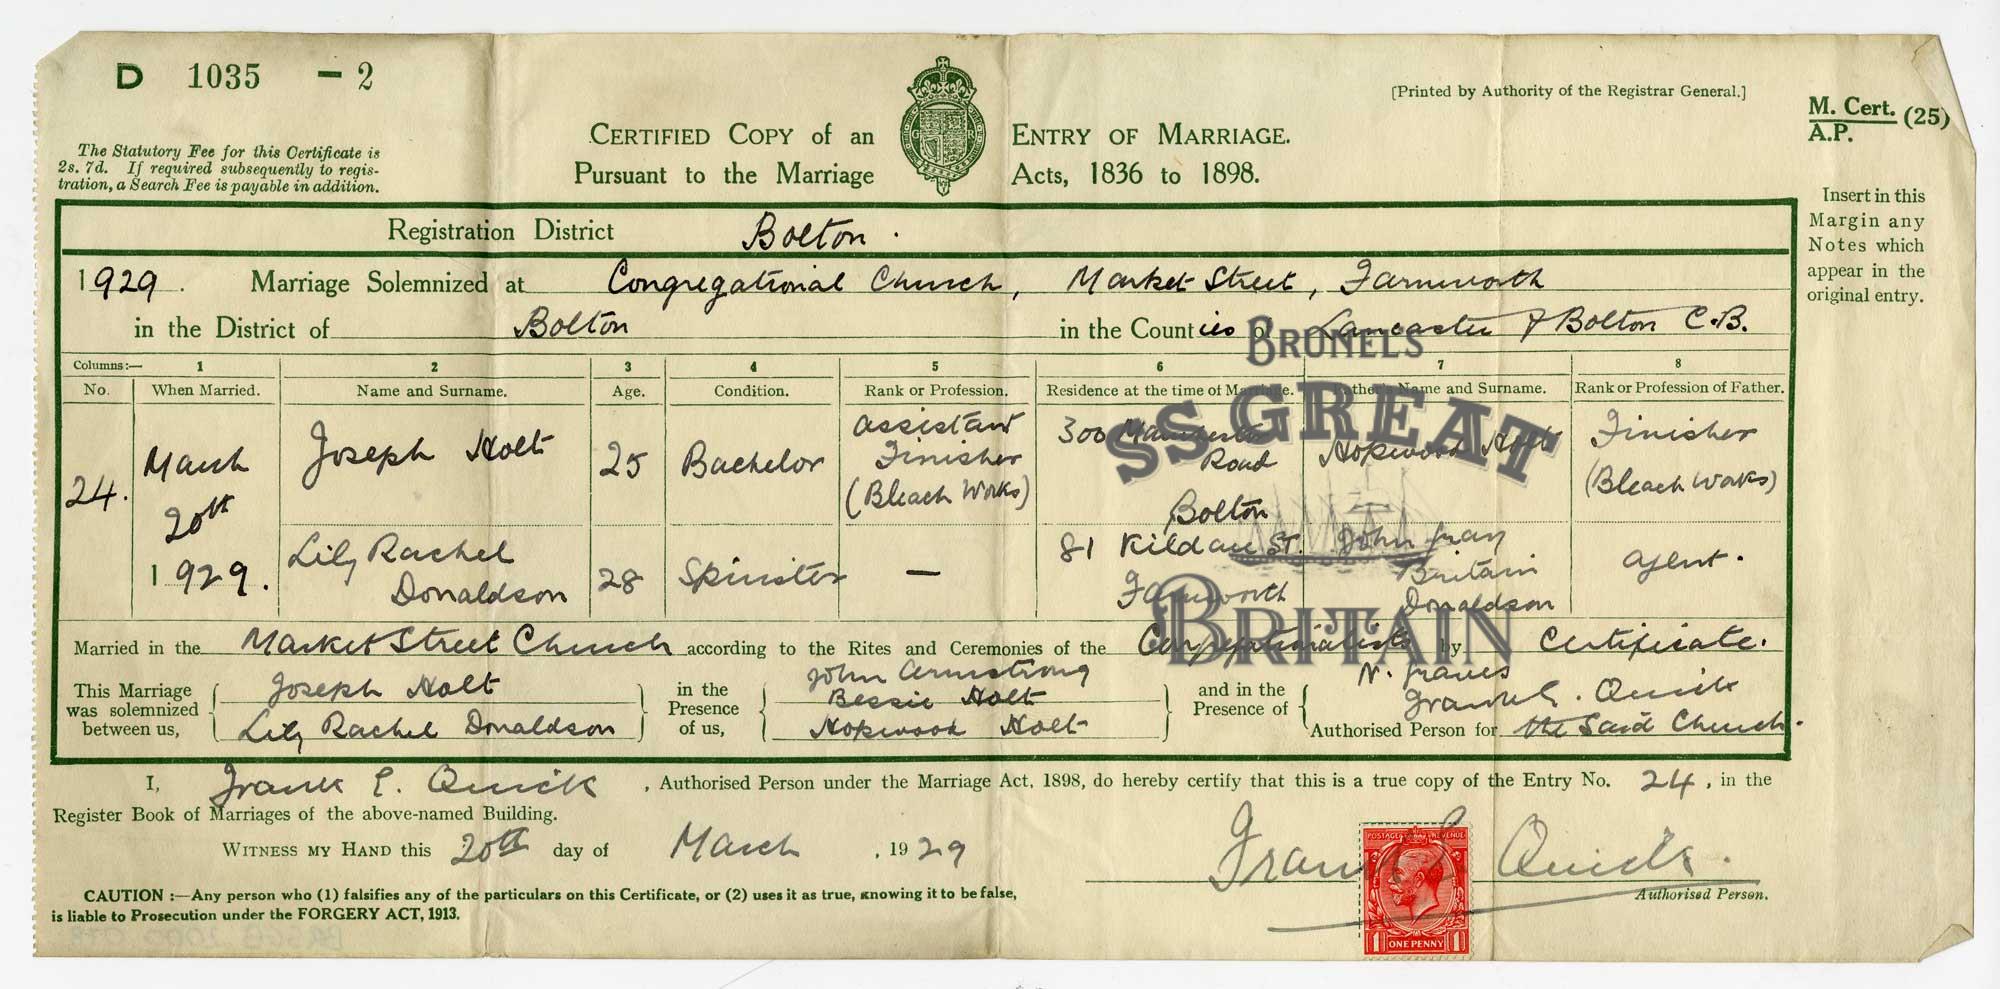 D 1035 - 2
[Printed by Authority of the Registrar General.]
M. Cert. (25)
A.P.
The Statutory Fee for this Certificate is
2s. 7d. If required subsequently to regis-
tration, a Search Fee is payable in addition.
CERTIFIED COPY of an ENTRY OF MARRIAGE.
Pursuant to the Marriage Acts, 1836 to 1898.
G R
Insert in this
Margin any
Notes which
appear in the
original entry.
Registration District Bolton.
1929. Marriage Solemnized at Congregational Church, Market Street, Farnworth
in the District of Bolton in the Counties of Lancaster & Bolton C.B.
Columns:— 1 2 3 4 5 6 7 8
No. When Married. Name and Surname. Age. Condition. Rank or Profession. Residence at the time of Marriage. Father's Name and Surname. Rank or Profession of Father.
24. March 20th 1929.
Joseph Holt 25 Bachelor Assistant Finisher (Bleach Works) 300 Manchester Road Bolton Hopwood Holt Finisher (Bleach Works)
Lily Rachel Donaldson 28 Spinster — 81 Kildare St. Farnworth John Gray Britain Donaldson Agent.
Married in the Market Street Church according to the Rites and Ceremonies of the Congregationalists by Certificate.
This Marriage
was solemnized
between us,
Joseph Holt
Lily Rachel Donaldson
in the
Presence
of us,
John Armstrong
Bessie Holt
Hopwood Holt
and in the
Presence of
N. Graves
Frank E. Quick
Authorised Person for the Said Church.
I, Frank E. Quick, Authorised Person under the Marriage Act, 1898, do hereby certify that this is a true copy of the Entry No. 24, in the
Register Book of Marriages of the above-named Building.
WITNESS MY HAND this 20th day of March, 1929
Frank E Quick.
Authorised Person.
CAUTION :—Any person who (1) falsifies any of the particulars on this Certificate, or (2) uses it as true, knowing it to be false,
is liable to Prosecution under the FORGERY ACT, 1913.
POSTAGE REVENUE
1 ONE PENNY 1
BRUNEL'S
SS GREAT
BRITAIN